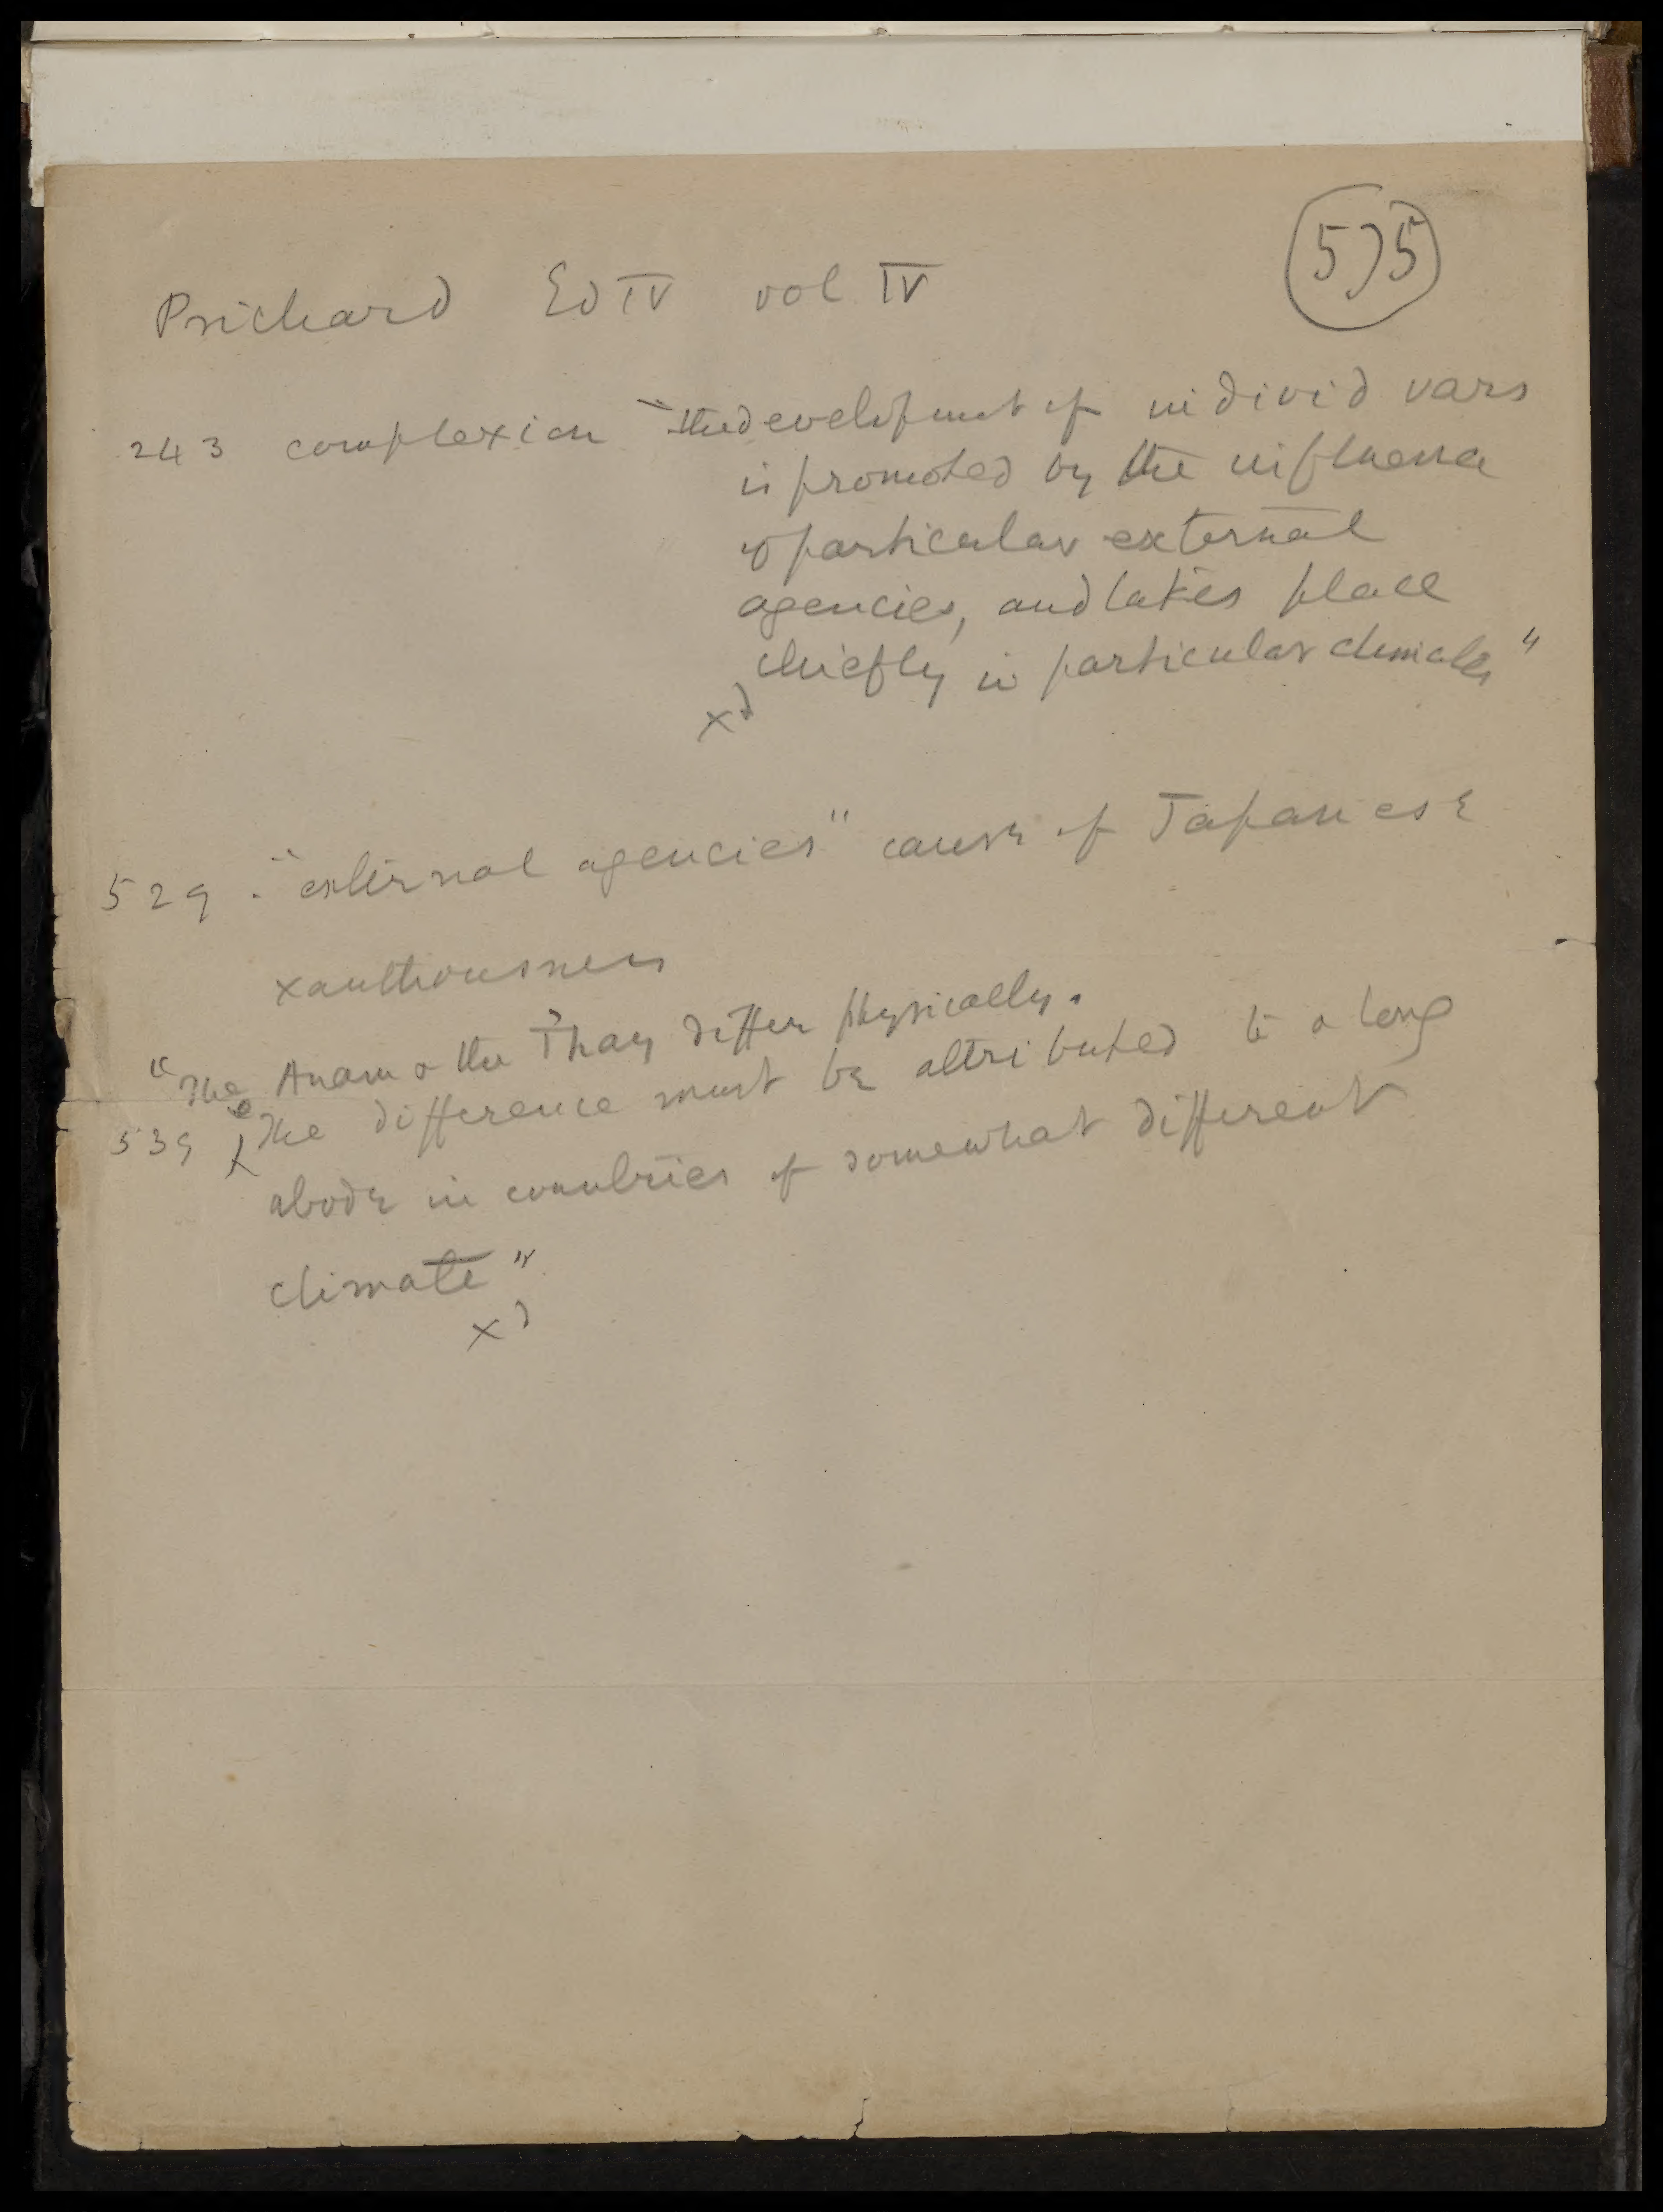 575
Prichard Ed IV vol IV
243 complexion "the development of individ vars
is promoted by the influence
of particular external
agencies, and takes place
chiefly in particular climates"
x)
529. "external agencies" cause of Japanese
xanthousness
"The Anam & the Thay differ physically.
539 The difference must be attributed to a long
abode in countries of somewhat different
climate"
x)